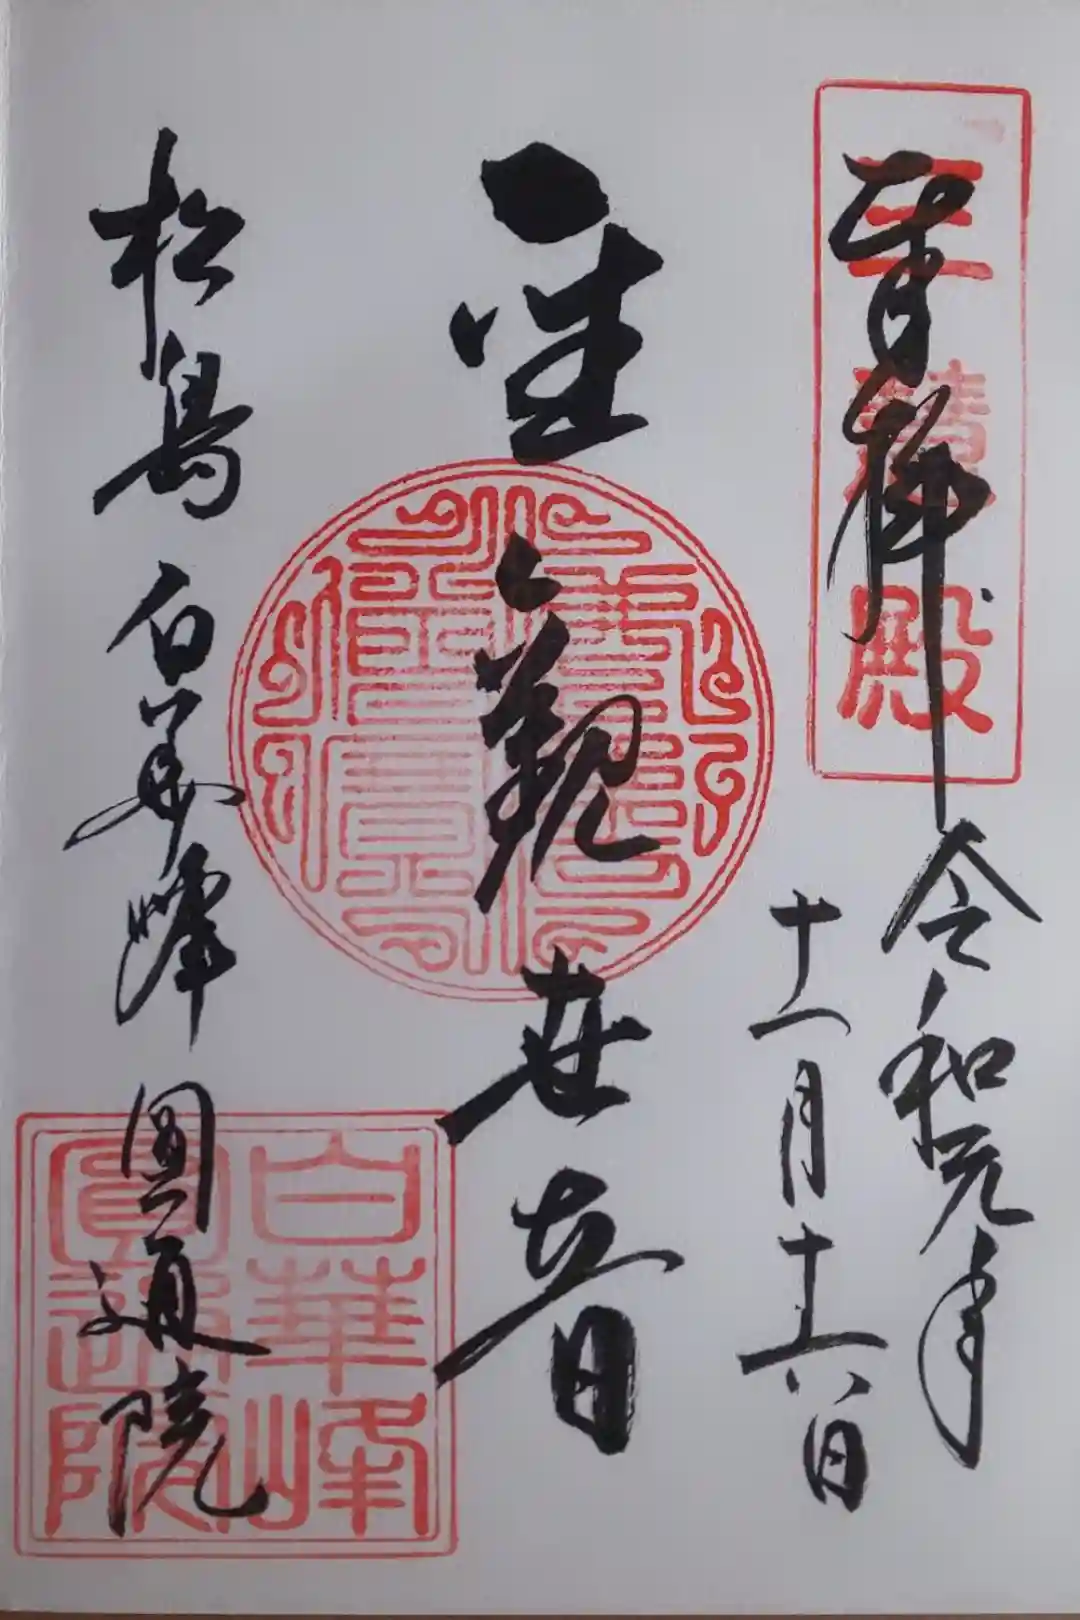 奉拝
三慧殿
令和元年
十一月十六日
聖観世音
松島 白華峰 圓通院
白華峰
圓通院